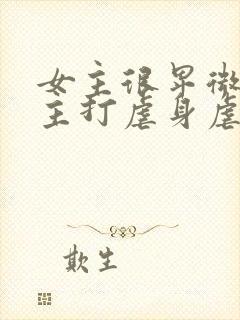 女主很早微
主打虐身虐
欺生